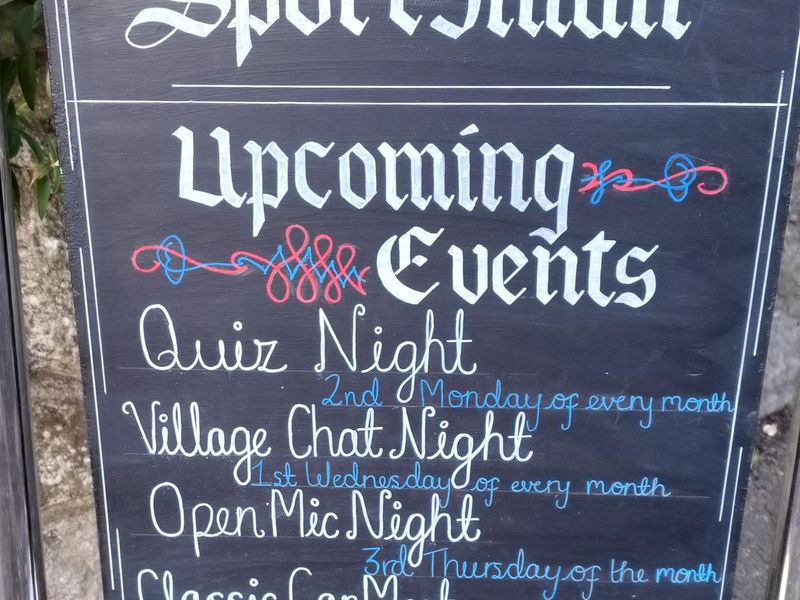 Sportsman
Upcoming
Events
Quiz Night
2nd Monday of every month
Village Chat Night
1st Wednesday of every month
Open Mic Night
3rd Thursday of the month
Classic Car Meet